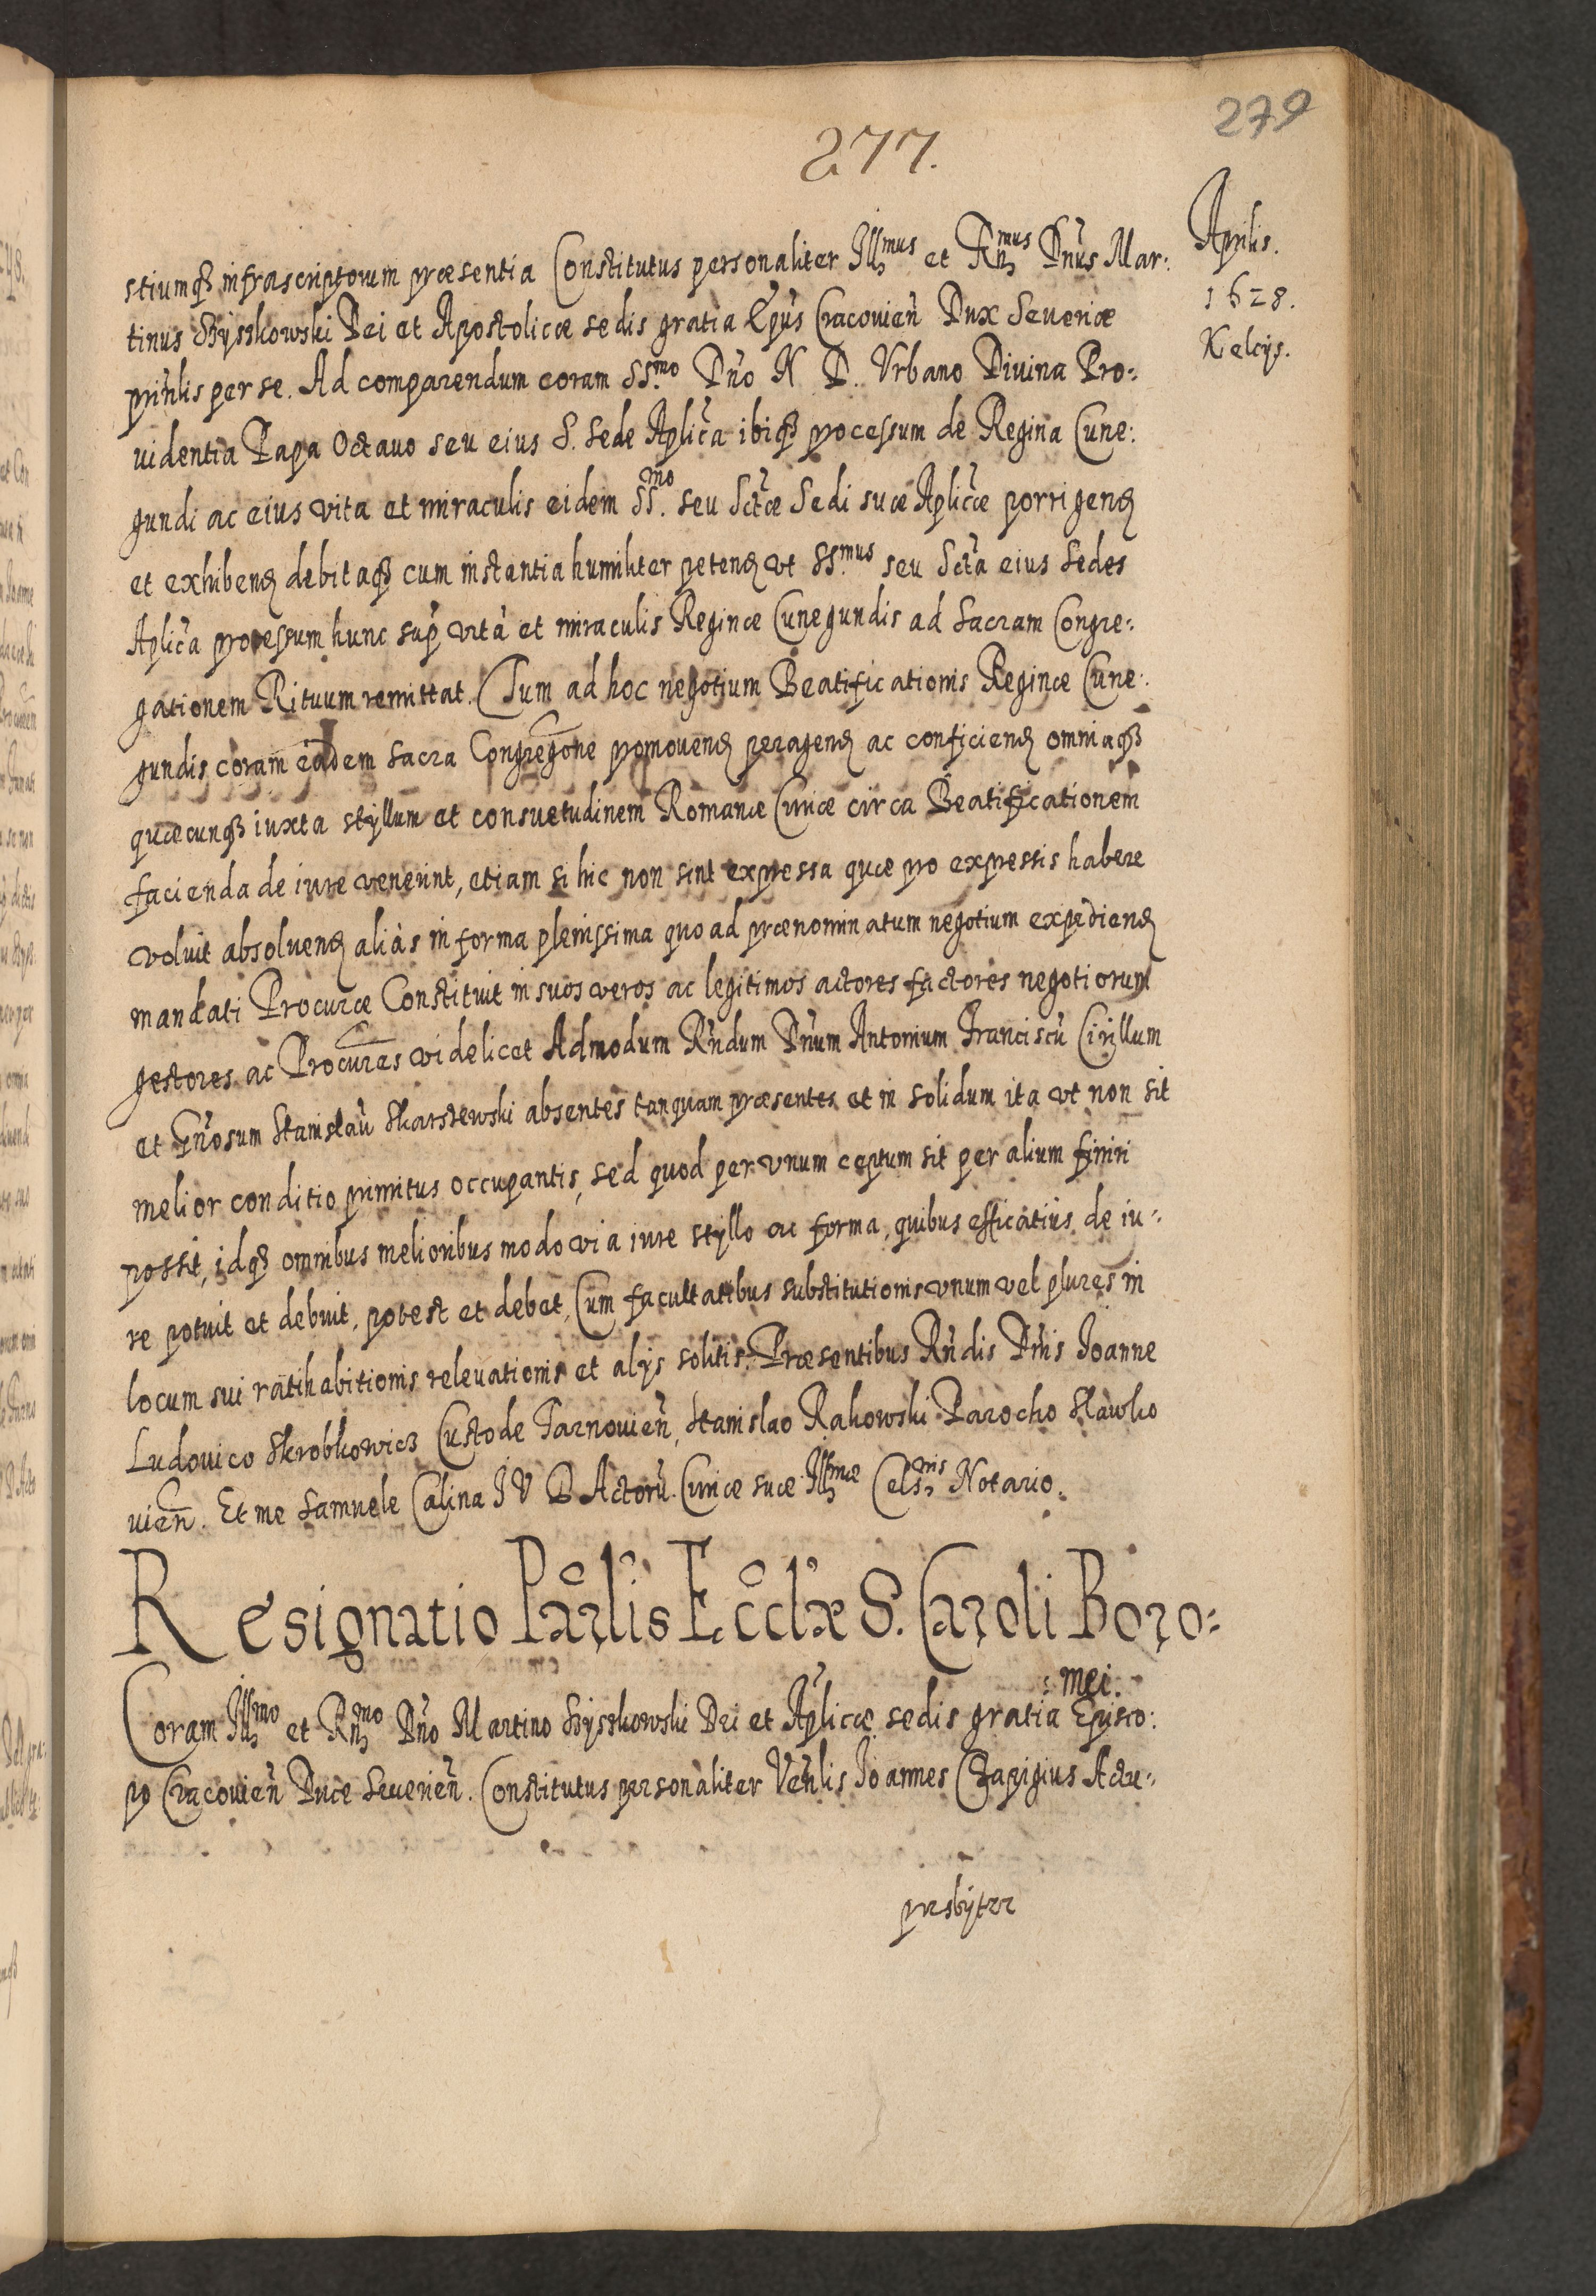 279
277.
Aprilis.
1628.
Kelcijs.
stiumq₃ infrascriptorum præsentia Constitutus personaliter Illmus et Rnmus Dnus Mar:
tinus Szyszkowski Dei et Apostolicæ sedis gratia Epus Cracovien Dux Severiæ
prinlis per se. Ad comparendum coram SS.mo Dno N D. Vrbano Diuina Pro:
uidentia Papa Octauo seu eius S. Sede Aplica ibiq₃ processum de Regina Cune:
gundi ac eius vita et miraculis eidem SS.mo seu Sctæ Sedi suæ Aplicæ porrigend
et exhibend debitaq₃ cum instantia humiliter petend vt SS.mus seu Scta eius Sedes
Aplica processum hunc sup vita et miraculis Reginæ Cunegundis ad Sacram Congre:
gationem Rituum remittat. Tum ad hoc negotium Beatificationis Reginæ Cune:
gundis coram eadem sacra Congregone promouend peragend ac conficiend omniaq₃
quæcunq₃ iuxta styllum et consuetudinem Romanæ Curiæ circa Beatificationem
facienda de iure venerint, etiam si hic non sint expressa quæ pro expressis habere
voluit absoluend aliàs in forma plenissima quo ad prænominatum negotium expediend
mandati Procuræ Constituit in suos veros ac legitimos actores factores negotiorum
gestores ac Procures videlicet Admodum Rndum Dnum Antonium Franciscu Cirillum
et Gnosum Stanislau Skarszewski absentes tanquam præsentes et in solidum ita vt non sit
melior conditio primitus occupantis, sed quod per vnum ceptum sit per alium finiri
possit, idq₃ omnibus melioribus modo via iure styllo ac forma, quibus efficatius de iu:
re potuit et debuit, potest et debet, Cum facultatibus substitutionis vnum vel plures in
locum sui ratihabitionis releuationis et alijs solitis. Præsentibus Rndis Dnis Joanne
Ludovico Skrobkowicz Custode Tarnouien, Stanislao Rakowski Parocho Sławko
uien. Et me Samuele Calina J V D Actoru Curiæ suæ Illmæ Celsnis Notario.
Resignatio Parlis Ecclæ S. Caroli Boro:
mei.
Coram Illmo et Rnmo Dno Martino Szyszkowski Dei et Aplicæ sedis gratia Episco:
po Cracouien Duce Seuerien. Constitutus personaliter Venlis Joannes Czapigius Actu:
presbyter